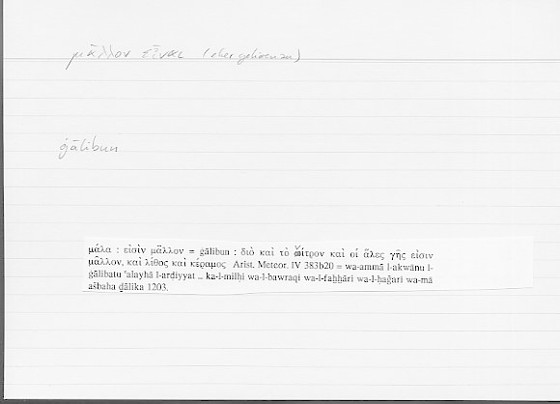 μᾶλλον εἶναι (eher gehören zu)
ġālibun
μάλα : εἰσὶν μᾶλλον = ġālibun : διὸ καὶ τὸ νίτρον καὶ οἱ ἅλες γῆς εἰσιν
μᾶλλον, καὶ λίθος καὶ κέραμος Arist. Meteor. IV 383b20 = wa-ammā l-akwānu l-
ġālibatu ʿalayhā l-arḍiyyat .. ka-l-milḥi wa-l-bawraqi wa-l-faḫḫāri wa-l-ḥaǧari wa-mā
ašbaha ḏālika 1203.